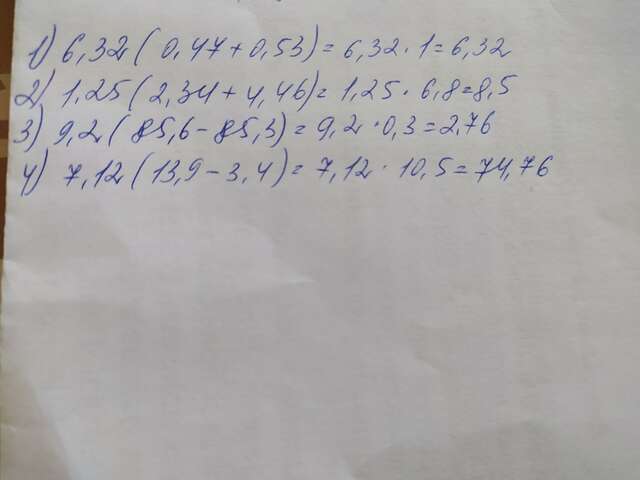 1) 6,32 ( 0,47 + 0,53 ) = 6,32 · 1 = 6,32
2) 1,25 ( 2,34 + 4,46 ) = 1,25 · 6,8 = 8,5
3) 9,2 ( 85,6 - 85,3 ) = 9,2 · 0,3 = 2,76
4) 7,12 ( 13,9 - 3,4 ) = 7,12 · 10,5 = 74,76